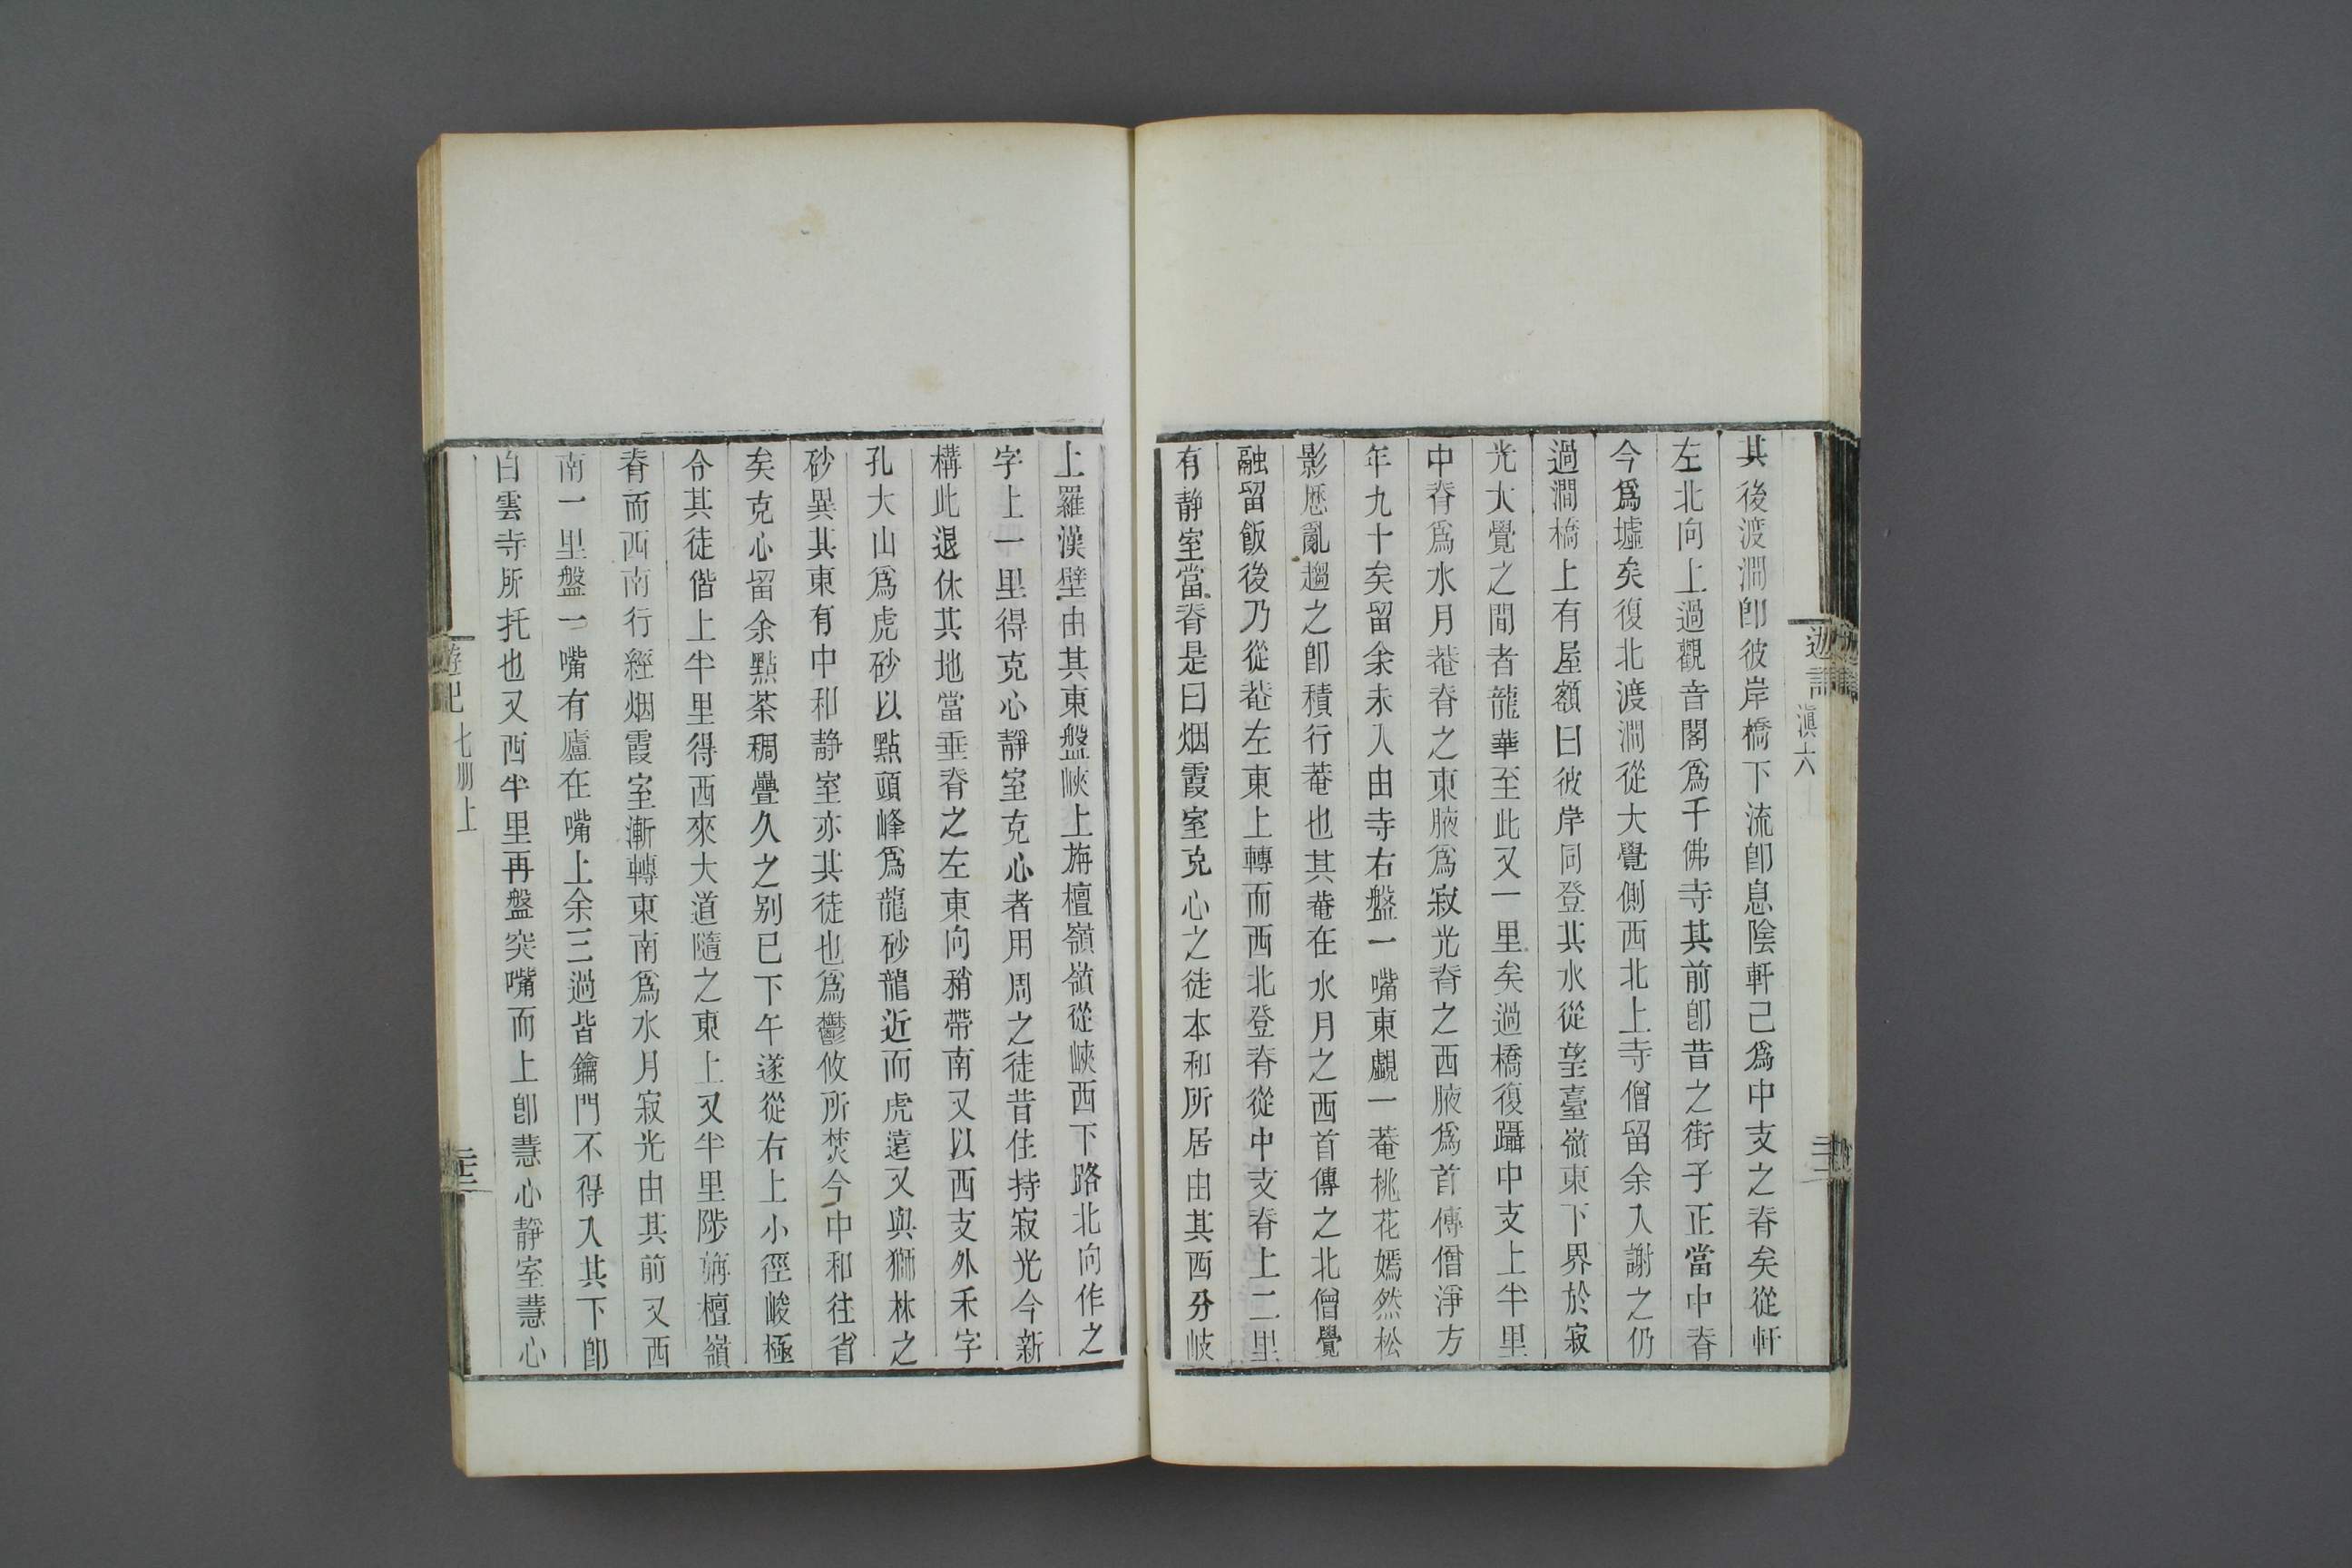 遊記
滇六
其後渡澗卽彼岸橋下流卽息陰軒己爲中支之脊矣從軒
左北向上過觀音閣爲千佛寺其前卽昔之街子正當中脊
今爲墟矣復北渡澗從大覺側西北上寺僧留余入謝之仍
過澗橋上有屋額曰彼岸同登其水從望臺嶺東下界於寂
光大覺之間者龍華至此又一里矣過橋復躡中支上半里
中脊爲水月菴脊之東腋爲寂光脊之西腋爲首傳僧淨方
年九十矣留余未入由寺右盤一嘴東覷一菴桃花嫣然松
影歷亂趨之卽積行菴也其菴在水月之西首傳之北僧覺
融留飯後乃從菴左東上轉而西北登脊從中支脊上二里
有靜室當脊是曰烟霞室克心之徒本和所居由其西分岐
上羅漢壁由其東盤峽上旃檀嶺嶺從峽西下路北向作之
字上一里得克心靜室克心者用周之徒昔住持寂光今新
構此退休其地當垂脊之左東向稍帶南又以西支外禾字
孔大山爲虎砂以點頭峰爲龍砂龍近而虎遠又與獅林之
砂異其東有中和靜室亦其徒也爲鬱攸所焚今中和往省
矣克心留余點茶稠疊久之別已下午遂從右上小徑峻極
令其徒偕上半里得西來大道隨之東上又半里陟旃檀嶺
脊而西南行經烟霞室漸轉東南爲水月寂光由其前又西
南一里盤一嘴有廬在嘴上余三過皆鑰門不得入其下卽
白雲寺所托也又西半里再盤突嘴而上卽慧心靜室慧心
遊記
七册上